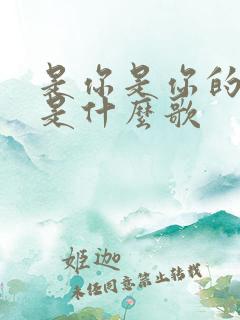 是你是你的
是什麼歌
姬迦
未经同意禁止转载